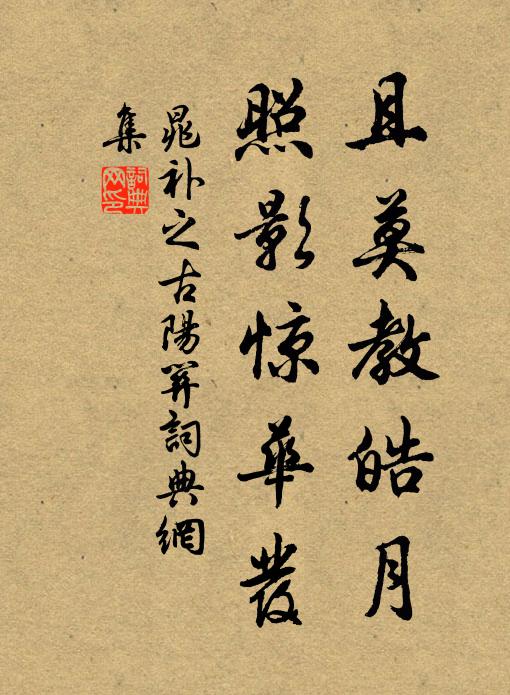 且莫教皓月
照影惊華發
晁补之古陽關詞典網
集
詞典網印